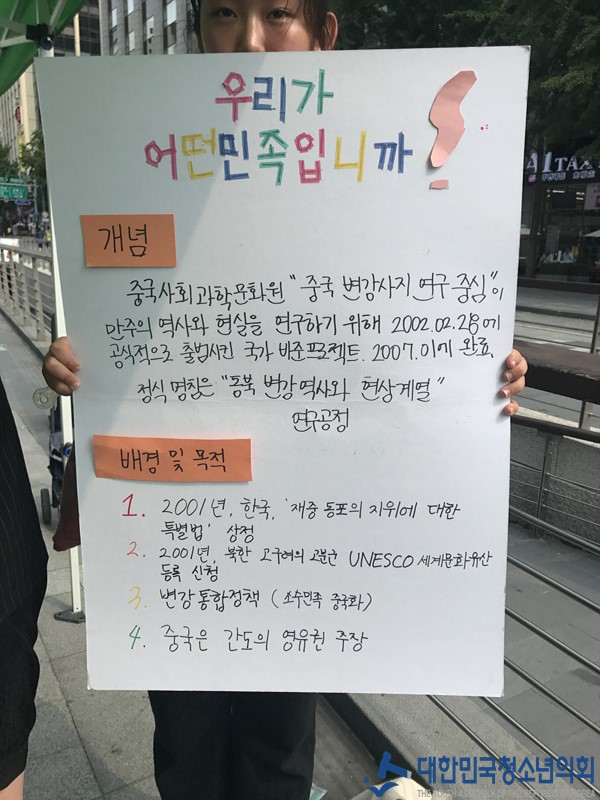 우리가
어떤민족입니까?
개념
중국사회과학문화원 "중국 변강사지 연구 중심"이
만주의 역사와 현실을 연구하기 위해 2002.02.28에
공식적으로 출범시킨 국가 비준프로젝트. 2007.1에 완료
정식 명칭은 "동북 변강역사와 현상계열"
연구공정
배경 및 목적
1. 2001년, 한국, '재중 동포의 지위에 대한
특별법' 상정
2. 2001년, 북한 고구려의 고분군 UNESCO 세계문화유산
등록 신청
3. 변강통합정책 (소수민족 중국화)
4. 중국은 간도의 영유권 주장
TAX
대한민국청소년의회
THE YOUTH ASSEMBLY OF THE REPUBLIC OF KOREA